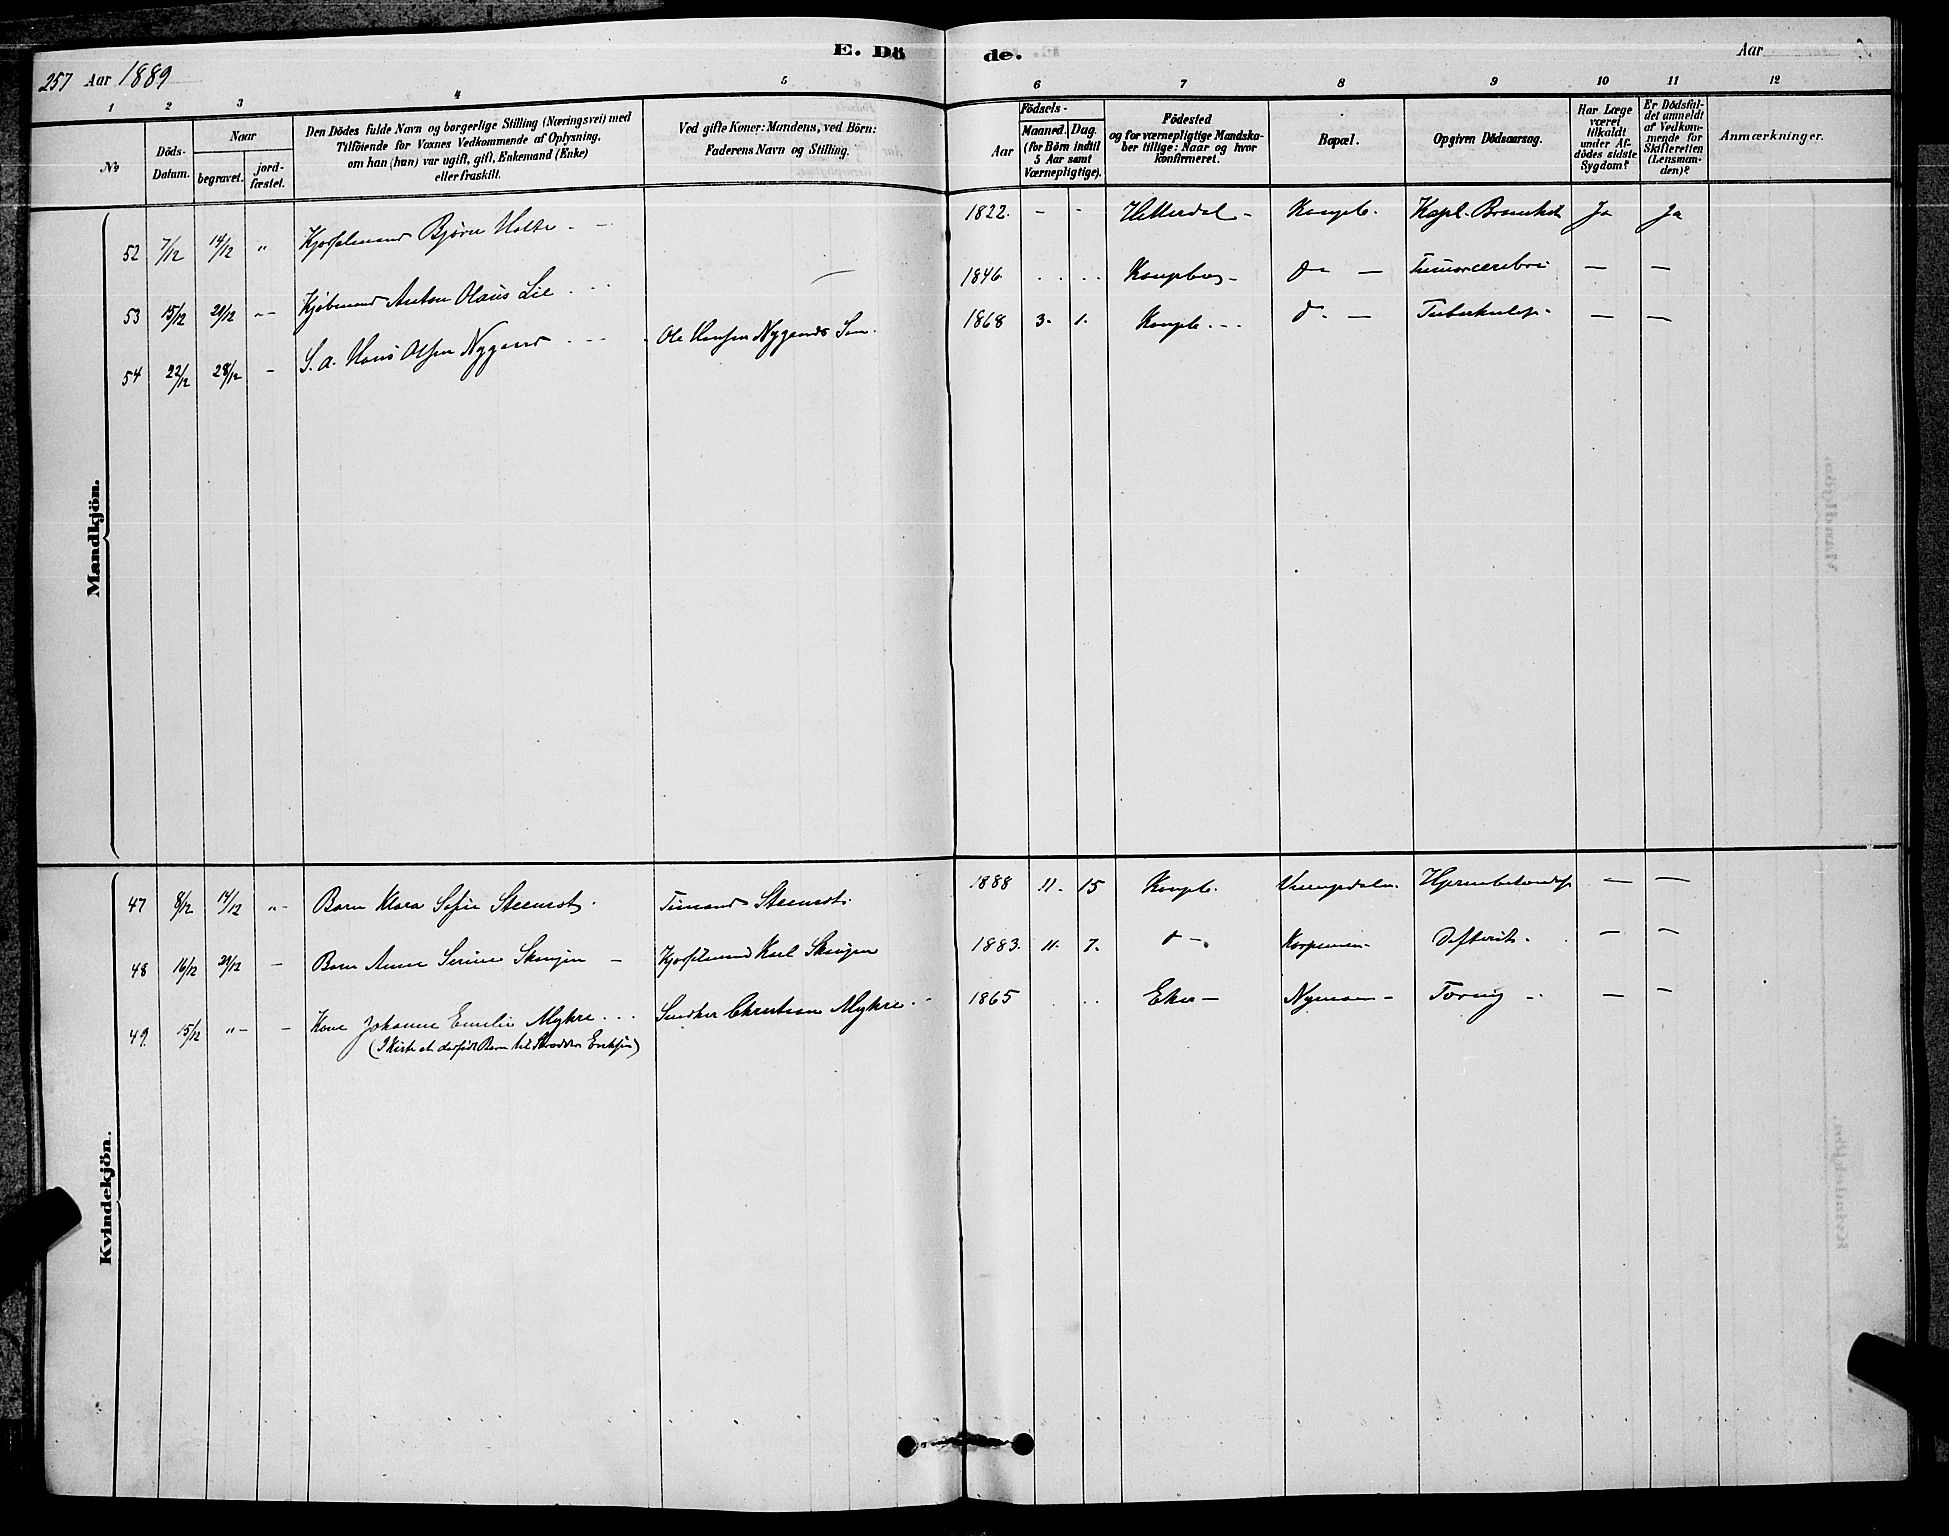 257 Aar 1889
E. Dö de.
Aar
1 2 3 4 5 6 7 8 9 10 11 12
No
Döds-Datum.
Naar
begravet.
jord-fæstet.
Den Dödes fulde Navn og borgerlige Stilling (Næringsvei) med
Tilföiende for Voxnes Vedkommende af Oplysning,
om han (hun) var ugift, gift, Enkemand (Enke)
eller fraskilt.
Ved gifte Koner: Mandens, ved Börn:
Faderens Navn og Stilling.
Födsels-
Aar
Maaned. Dag.
(for Börn indtil
5 Aar samt
Værnepligtige).
Födested
og for værnepligtige Mandska-
ber tillige: Naar og hvor
konfirmeret.
Bopæl.
Opgiven Dödsaarsag.
Har Læge
været
tilkaldt
under Af-
dödes sidste
Sygdom?
Er Dödsfal-
det anmeldt
af Vedkom-
mende for
Skifteretten
(Lensman-
den)?
Anmærkninger.
Mandkjön.
52 7/12 14/12 " Bjørn Holte - 1822. - - Hitterdal - Kongsb. Ja Ja
53 15/12 21/12 " - Kjøbmand Anton Olaus Lie 1846. Kongsberg - d - — — —
54 22/12 28/12 - S. a. Hans Olsen Nygaard Ole Hansen Nygaards Søn. 1868 3. 1. Kongsb. d. — Tuberkulos. — —
Kvindekjön.
47 8/12 14/12 " - Barn Klara Sofie Steenrst. Steenrst. 1888 11. 15 Kongsb. — —
48 16/12 29/12 - Barn Anne Serine Skaugen - Karl Skaugen 1883. 11. 7. d -. Difterit. — —
49. 15/12 " - - Kone Johanne Emilie Myhre Snedker Christian Myhre. 1865 Eker - Nymoen - Tæring - — —
(I Kiste et dødfødt Barn til Skrædder Eriksen)